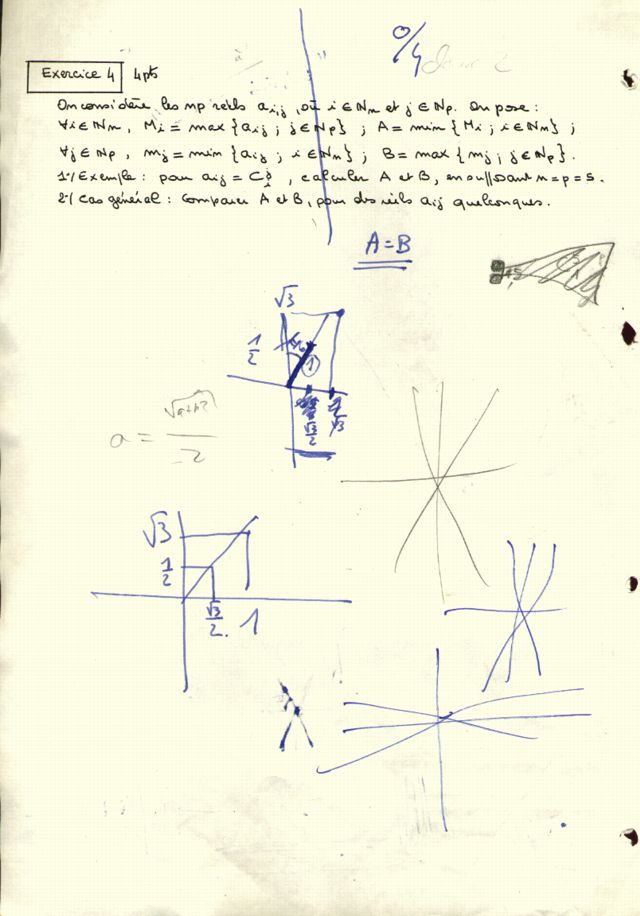 0/4
Exercice 4 4pts
On considère les np réels ai,j, où i ∈ Nn et j ∈ Np. On pose :
∀i ∈ Nn, Mi = max {aij ; j ∈ Np} ; A = min {Mi ; i ∈ Nn} ;
∀j ∈ Np, mj = min {aij ; i ∈ Nn} ; B = max {mj ; j ∈ Np}.
1°/ Exemple : pour aij = C , calculer A et B, en supposant n = p = 5.
2°/ Cas général : Comparer A et B, pour des réels aij quelconques.
A = B
√3
1/2
1
√3/2 √3
a = √a+b²/2
√3
1/2
√3/2. 1